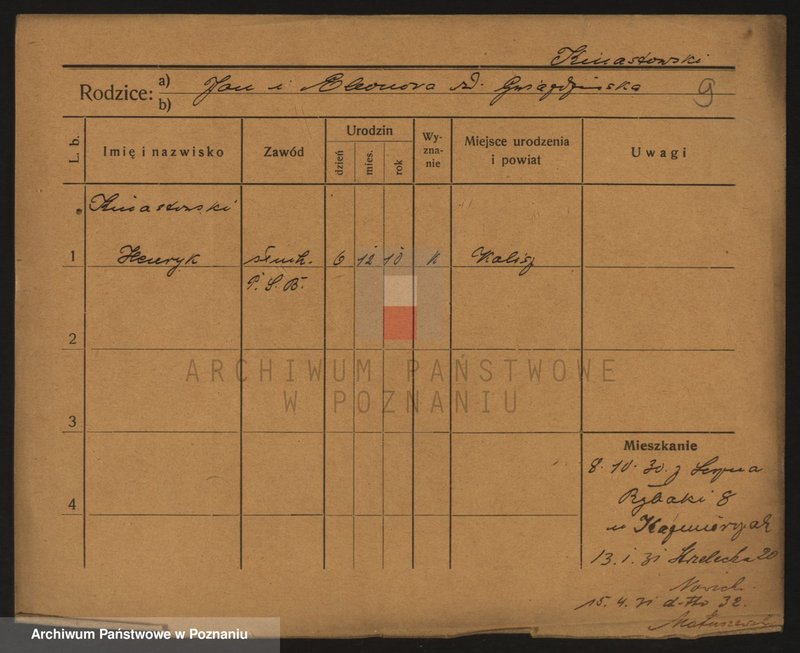 Kinastowski
Rodzice: a) Jan i Eleonora zd. Gwiaździńska 9
b)
L. b. Imię i nazwisko Zawód Urodzin dzień mies. rok Wy-zna-nie Miejsce urodzenia i powiat Uwagi
Kinastowski
1 Henryk słuch. 6 12 10 k Kalisz
P. S. B.
2
ARCHIWUM PAŃSTWOWE
W POZNANIU
3
Mieszkanie
8. 10. 30. z
4 Rybaki 8
u Kaźmierczak
13. 1. 31 Strzelecka 20
15. 4. 31 d-tto 32.
Archiwum Państwowe w Poznaniu